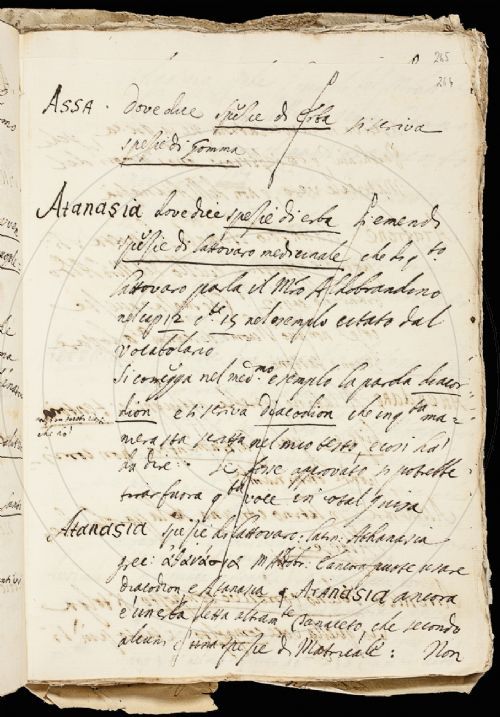 245
244
ASSA. Dove dice spezie di Erba si scriva
spezie di Gomma
ATANASIA dove dice spezie di erba si emendi
spezie di lattovaro medicinale, che di q.to
lattovaro parla il M.ro Aldobrandino
nel cap. 12 e 15 nel esemplo citato dal
vocabolario
Si corregga nel med.mo esemplo la parola diacor-
dion e si scriva Diacodion che in q.ta ma-
niera sta nel mio testo, e così ha
da dire. Se fosse approvato si potrebbe
tirar fuora q.ta voce in cotal guisa
ATANASIA spezie di lattovaro: latin. Athanasia
grec: ἀθανάσια M. Aldobr. E ancora puote usare
diacodion e atanasia ATANASIA ancora
è un'erba detta altram.te Tanaceto, che secondo
alcuni è spezie di Matricale: Non